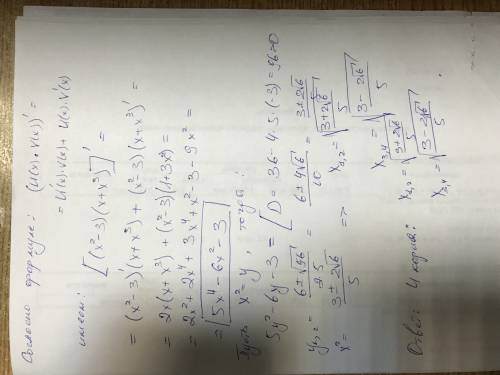 Согласно формуле: (U(x)·V(x))' =
= U'(x)·V(x) + U(x)·V'(x)
имеем: [(x²-3)(x+x³)]' =
= (x²-3)'(x+x³) + (x²-3)(x+x³)' =
= 2x(x+x³) + (x²-3)(1+3x²) =
= 2x² + 2x⁴ + 3x⁴ + x² - 3 - 9x² =
= 5x⁴ - 6x² - 3
Пусть x² = y, тогда:
5y² - 6y - 3 = [D = 36 - 4·5·(-3) = 96 > 0
y₁,₂ = (6 ± √96)/(2·5) = (6 ± 4√6)/10 = (3 ± 2√6)/5
x² = (3 ± 2√6)/5 => x₁,₂ = √((3+2√6)/5)
x₃,₄ = √((3-2√6)/5)
Ответ: 4 корня: x₁,₂ = √((3+2√6)/5)
x₃,₄ = √((3-2√6)/5).